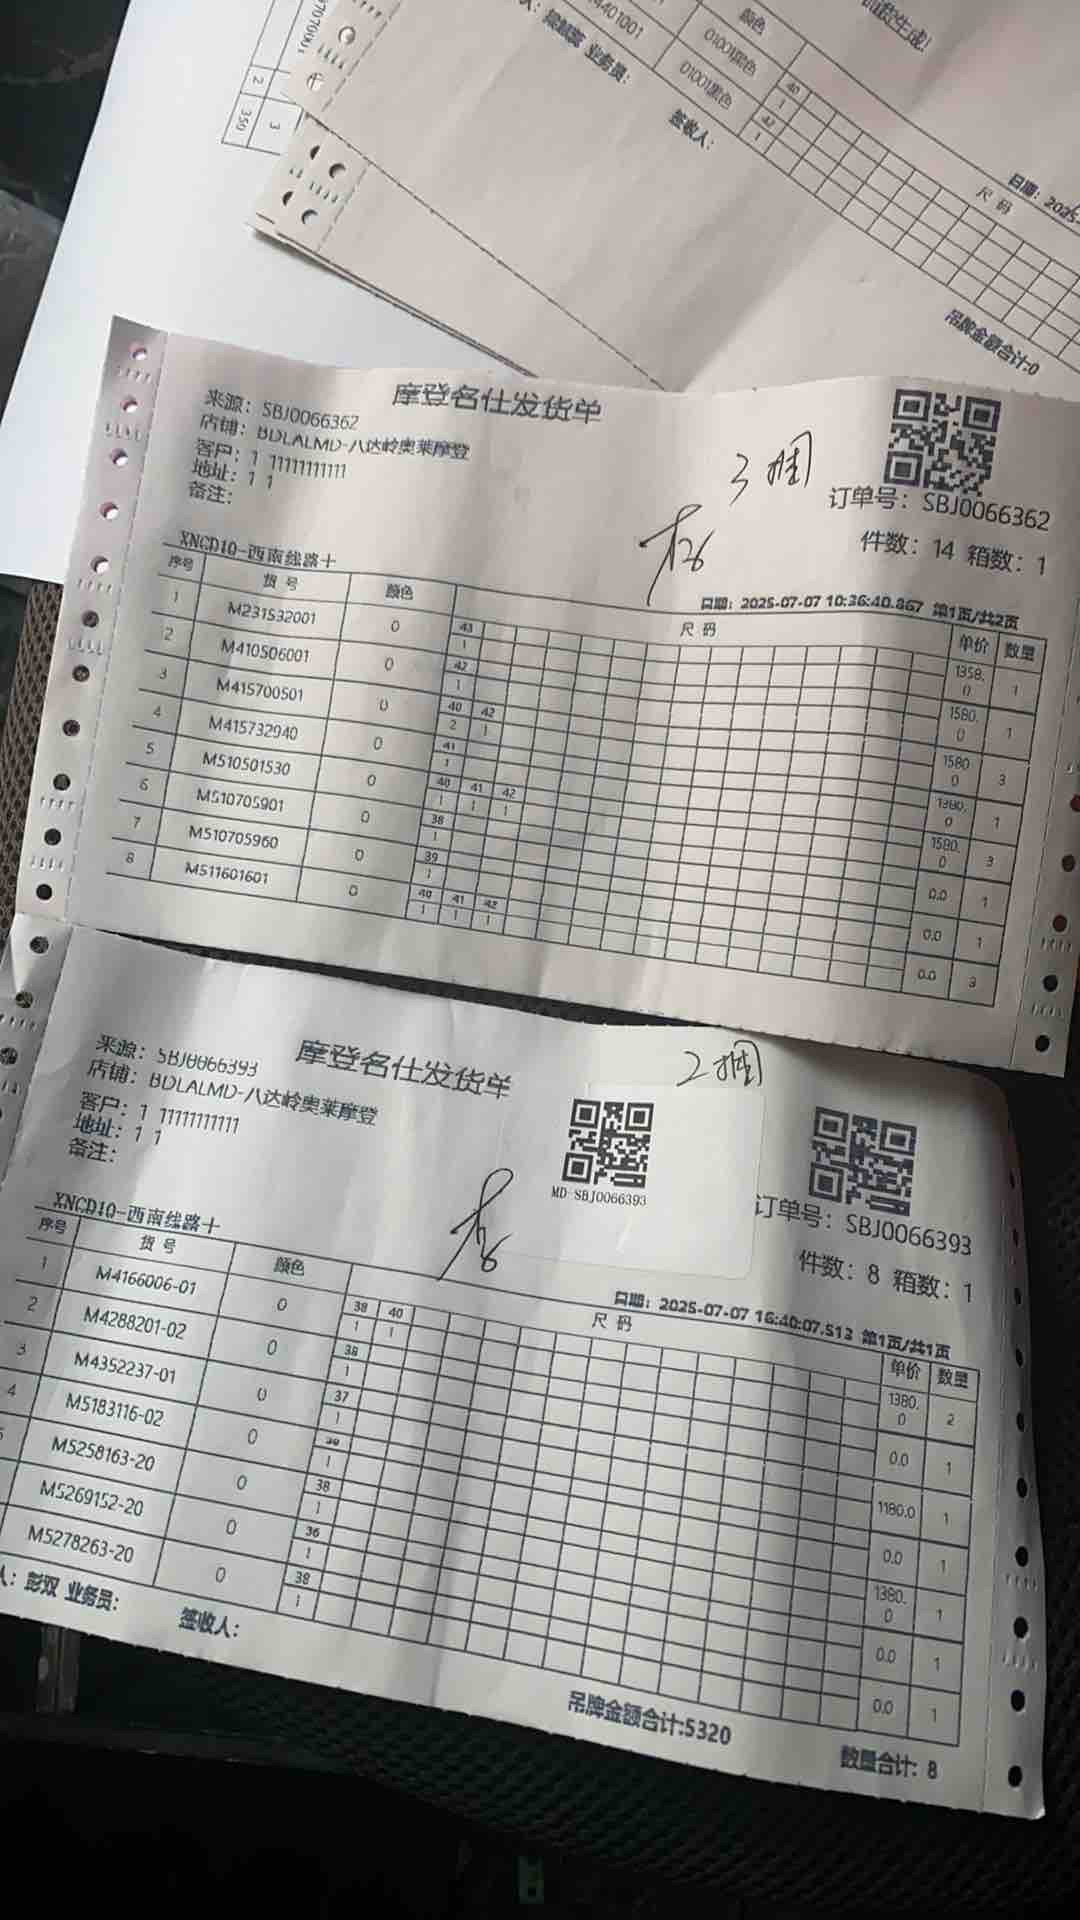 350
2
3
4401001
01001黑色
01001黑色
颜色
40
1
42
1
业务员:
签收人:
尺 码
日期: 2025-
吊牌金额合计:0
摩登名仕发货单
来源: SBJ0066362
店铺: BDLALMD-八达岭奥莱摩登
客户: 1 11111111111
地址: 1 1
备注:
3捆
订单号: SBJ0066362
件数: 14 箱数: 1
XNCD10-西南线路十
日期: 2025-07-07 10:36:40.867 第1页/共2页
序号 货 号 颜色 尺 码 单价 数量
1 M231532001 0 43 1 1358.0 1
2 M410506001 0 42 1 1580.0 1
3 M415700501 0 40 42 2 1 1580.0 3
4 M415732940 0 41 1 1380.0 1
5 M510501530 0 40 41 42 1 1 1 1580.0 3
6 M510705901 0 38 1 0.0 1
7 M510705960 0 39 1 0.0 1
8 M511601601 0 40 41 42 1 1 1 0.0 3
摩登名仕发货单
来源: SBJ0066393
店铺: BDLALMD-八达岭奥莱摩登
客户: 1 11111111111
地址: 1 1
备注:
2捆
MD-SBJ0066393
订单号: SBJ0066393
件数: 8 箱数: 1
XNCD10-西南线路十
日期: 2025-07-07 16:40:07.513 第1页/共1页
序号 货 号 颜色 尺 码 单价 数量
1 M4166006-01 0 38 40 1 1 1380.0 2
2 M4288201-02 0 38 1 0.0 1
3 M4352237-01 0 37 1 1180.0 1
4 M5183116-02 0 1 0.0 1
5 M5258163-20 0 38 1 1380.0 1
M5269152-20 0 36 1 0.0 1
M5278263-20 0 38 1 0.0 1
人: 彭双 业务员: 签收人:
吊牌金额合计:5320
数量合计: 8